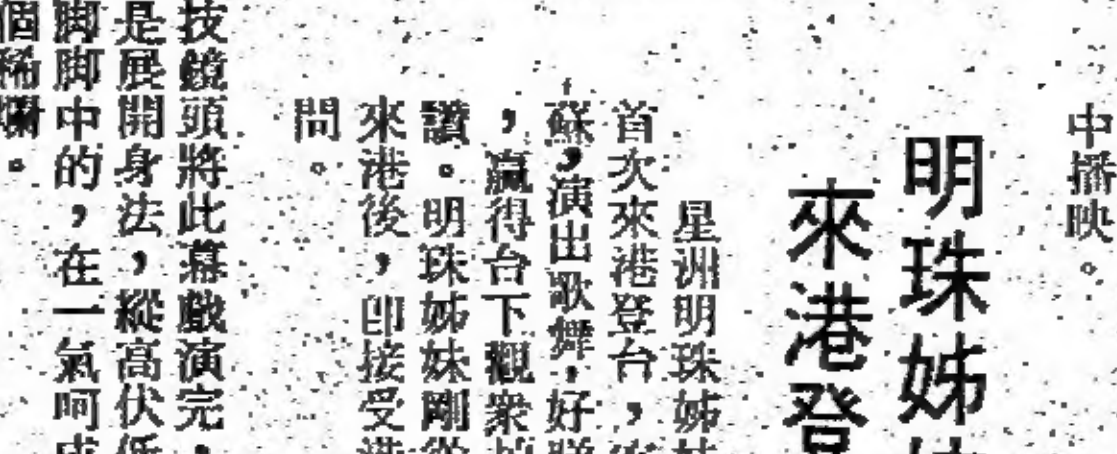 中播映。
明珠姊
來港登
星洲明珠姊
首次來港登台，
蘇，演出歌舞，好
，贏得台下觀衆
讚。明珠姊妹剛從
來港後，即接受
問。
技鏡頭將此幕戲演完，
是展開身法，縱高伏低
脚脚中的，在一氣呵成
個稀爛。